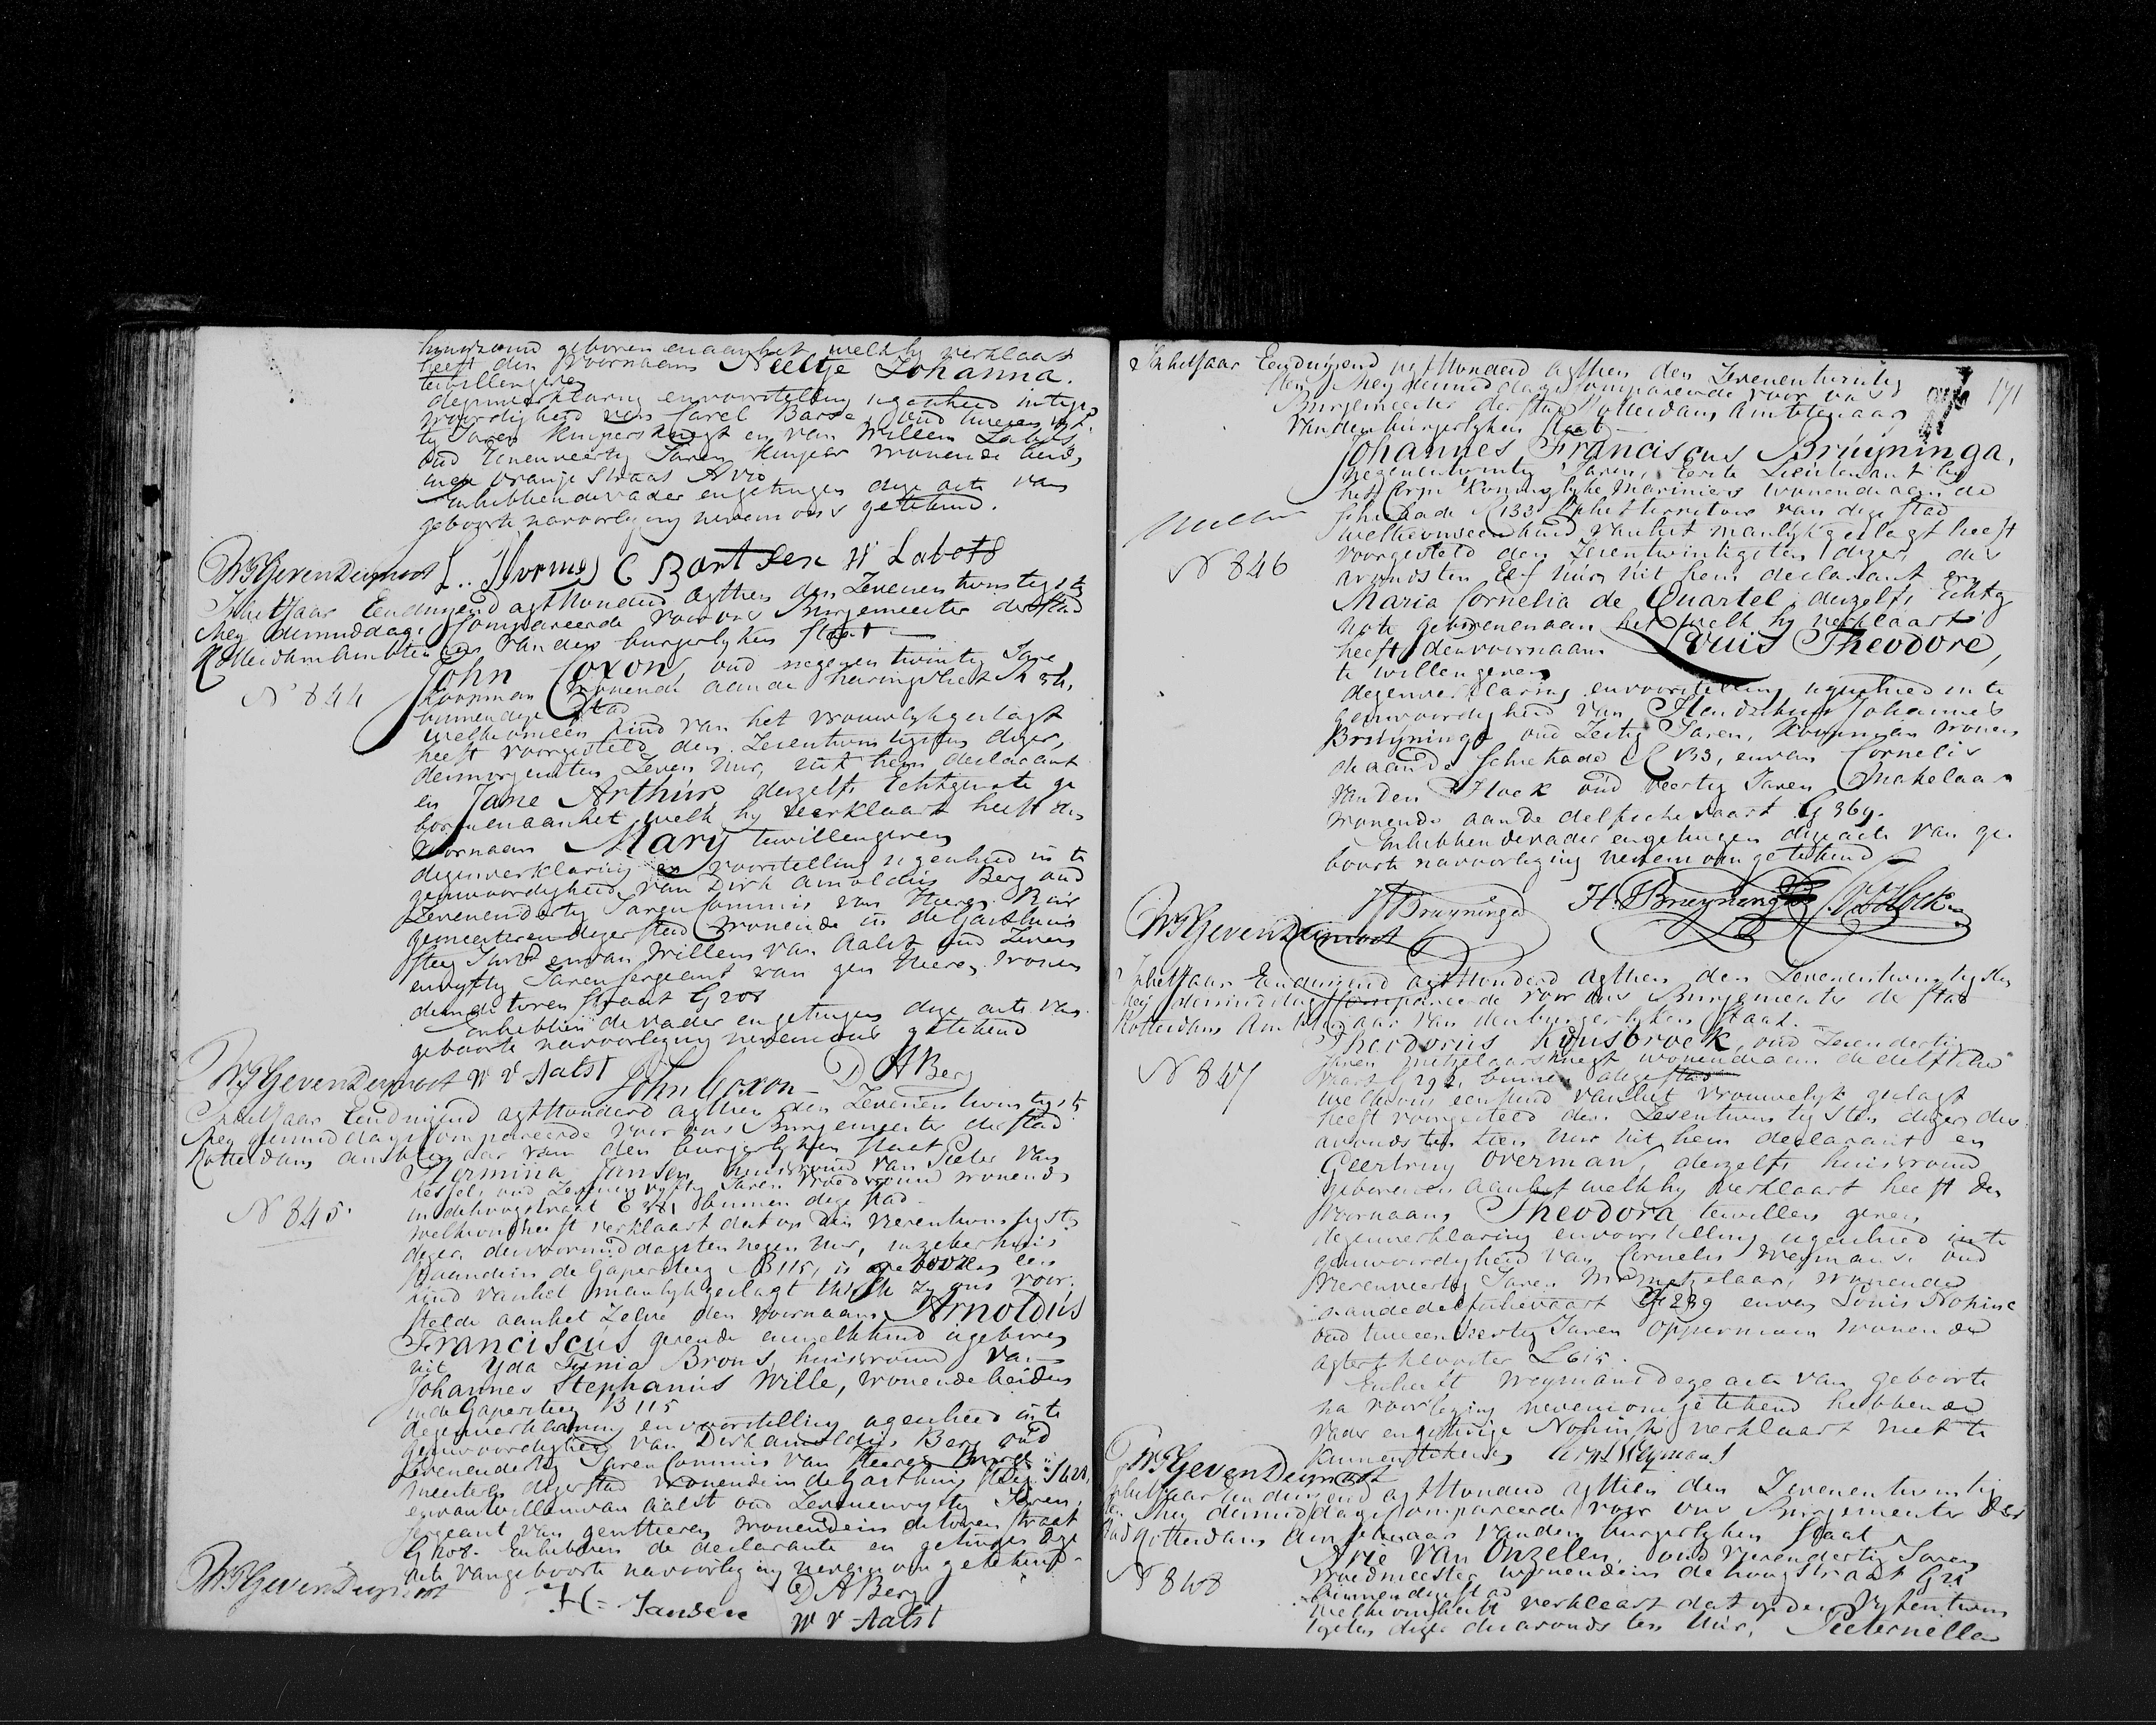 huisvrouw geboren en aan het welk hy verklaart
heeft den voornaam Neeltje Johanna.
te willen geven
deze verklaring en voorstelling is geschied in tegen
woordigheid van Carel Bartse, oud
tig Jaren kuipersknegt en van Willem Labots
oud Jaren kuiper wonende beide
in de Oranje Straat
En hebben de vader en getuigen deze acte van
geboorte na voorlezing nevens ons getekend.
WF Gevers Deynoot C Bartsen W Labots
In het Jaar Eenduizend agt Honderd agthien den Zevenentwintigste
Mey des middags Compareerde voor ons Burgemeester der Stad
Rotterdam Ambtenaar van den burgerlyken Staat
John Coxon, oud negenentwintig Jare
N 844
Koopman wonende aan de haringvliet
binnen deze Stad
welke ons een kind van het vrouwlyk geslagt
heeft voorgesteld den Zeventwintigsten dezer,
des morgens ten Zeven Uur, uit hem declarant
en Jane Arthur, deszelfs Echtgenote ge
boren en aan het welk hy verklaart heeft den
Voornaam Mary te willen geven
deze verklaring en voorstelling is geschied in te
genwoordigheid van Dirk Arnoldus Berg oud
Zevenendertig Jaren Commis van Heeren Burge
gemeesteren dezer stad wonende in de Gasthuis
steeg en van Willem van Aalst oud Zeven
envyftig Jaren Sergeant van gem Heeren wonen
de in de toren Straat G 208
En hebben de vader en getuigen deze acte van
geboorte na voorlezing nevens ons getekend
WF Gevers Deynoot W v Aalst John Coxon D A Berg
In het Jaar Eenduizend agt Honderd agthien den Zevenentwintigste
Mey des middags Compareerde voor ons Burgemeester der stad
Rotterdam ambtenaar van den burgerlyken staat
Hermina Jansen huisvrouw van Pieter van
Jaren vroedvrouw wonende
in de hoogstraat binnen deze stad
N 845.
welke ons heeft verklaart dat op den vierentwintigste
dezer des voormiddags ten negen Uur, in zeker huis
staande in de Gapersteeg B 115, is geboren een
kind van het manlyk geslagt 't welk zy ons voor
stelde aan het Zelve den voornaam Arnoldus
Franciscus gevende en welk kind is geboren
uit Yda Brons, huisvrouw van
Johannes Stephanus Wille, wonende beide
in de Gapersteeg B 115
deze verklaring en voorstelling is geschied in te
genwoordigheid van Dirk Arnoldus Berg oud
Zevenendertig Jaren Commis van Heeren Burge
meesteren dezer stad wonende in de Gasthuis steeg
en van Willem van Aalst oud Zevenenvyftig Jaren,
sergeant van gem Heeren wonende in de toren straat
G 208. En hebben de declarante en getuigen deze
acte van geboorte na voorlezing nevens ons getekend.
WF Gevers Deynoot H = Jansen D A Berg
W v Aalst
171
In het Jaar Eenduizend agt Honderd agthien den Zevenentwintig
sten Mey des middags Compareerde voor ons
Burgemeester der stad Rotterdam Ambtenaar
van den burgerlyken staat
Johannes Franciscus Bruyninga,
negenentwintig Jaren, Eerste Lieutenant by
het Corps Koninglyke Mariniers wonende aan de
Schiekade C 133 op het territoir van deze stad
welke ons een kind van het manlyk geslagt heeft
N 846
voorgesteld den Zeventwintigsten dezer, des
avonds ten Elf Uur uit hem declarant en
Maria Cornelia de Quartel, deszelfs Echtg
note geboren en aan het welk hy verklaart
heeft den voornaam Louis Theodore,
te willen geven
deze verklaring en voorstelling is geschied in te
genwoordigheid van Johannes
Bruyninga oud Zestig Jaren, Koopman wonen
de aan de Schiekade C 133, en van Cornelis
van den Hoek oud veertig Jaren Makelaar
wonende aan de delfsche vaart G 369.
En hebben de vader en getuigen deze acte van ge
boorte na voorlezing nevens ons getekend
WF Gevers Deynoot J F Bruyninga H. J Bruyninga C v d Hoek
In het Jaar Eenduizend agt Honderd agthien den Zevenentwintigsten
Mey des middags Compareerde voor ons Burgemeester der stad
Rotterdam Ambtenaar van den burgerlyken staat.
Theodorus Kynsbroek, oud
Jaren metzelaarsknegt wonende aan de delftsche
N 847
vaart G 292, binnen deze stad
welke ons een kind van het vrouwelyk geslagt
heeft voorgesteld den Zesentwintigsten dezer des
avonds ten tien Uur uit hem declarant en
Geertruy Overman, deszelfs huisvrouw
geboren en aan het welk hy verklaart heeft den
Voornaam Theodora te willen geven,
deze verklaring en voorstelling is geschied in te
genwoordigheid van Cornelis Weymans oud
Vierenveertig Jaren Metzelaar, wonende
aan de delfschevaart G 289 en van Louis Nohine
oud tweenveertig Jaren Opperman wonende
agter 't klooster L 615.
En heeft Weymans deze acte van geboorte
na voorlezing nevens ons getekend hebbende
vader en getuige Nohine verklaart niet te
kunnen tekenen Corns Weymans
WF Gevers Deynoot
In het Jaar Eenduizend agt Honderd agtien den Zevenentwintig
sten Mey des middags Compareerde voor ons Burgemeester der
stad Rotterdam Ambtenaar van den burgerlyken Staat
Arie van Onzelen, oud vierendertig Jaren
N 848
vroedmeester wonende in de hoogstraat
binnen deze stad
welke ons heeft verklaart dat op den Vyfentwin
tigsten dezer des avonds ten Uur, Pieternella